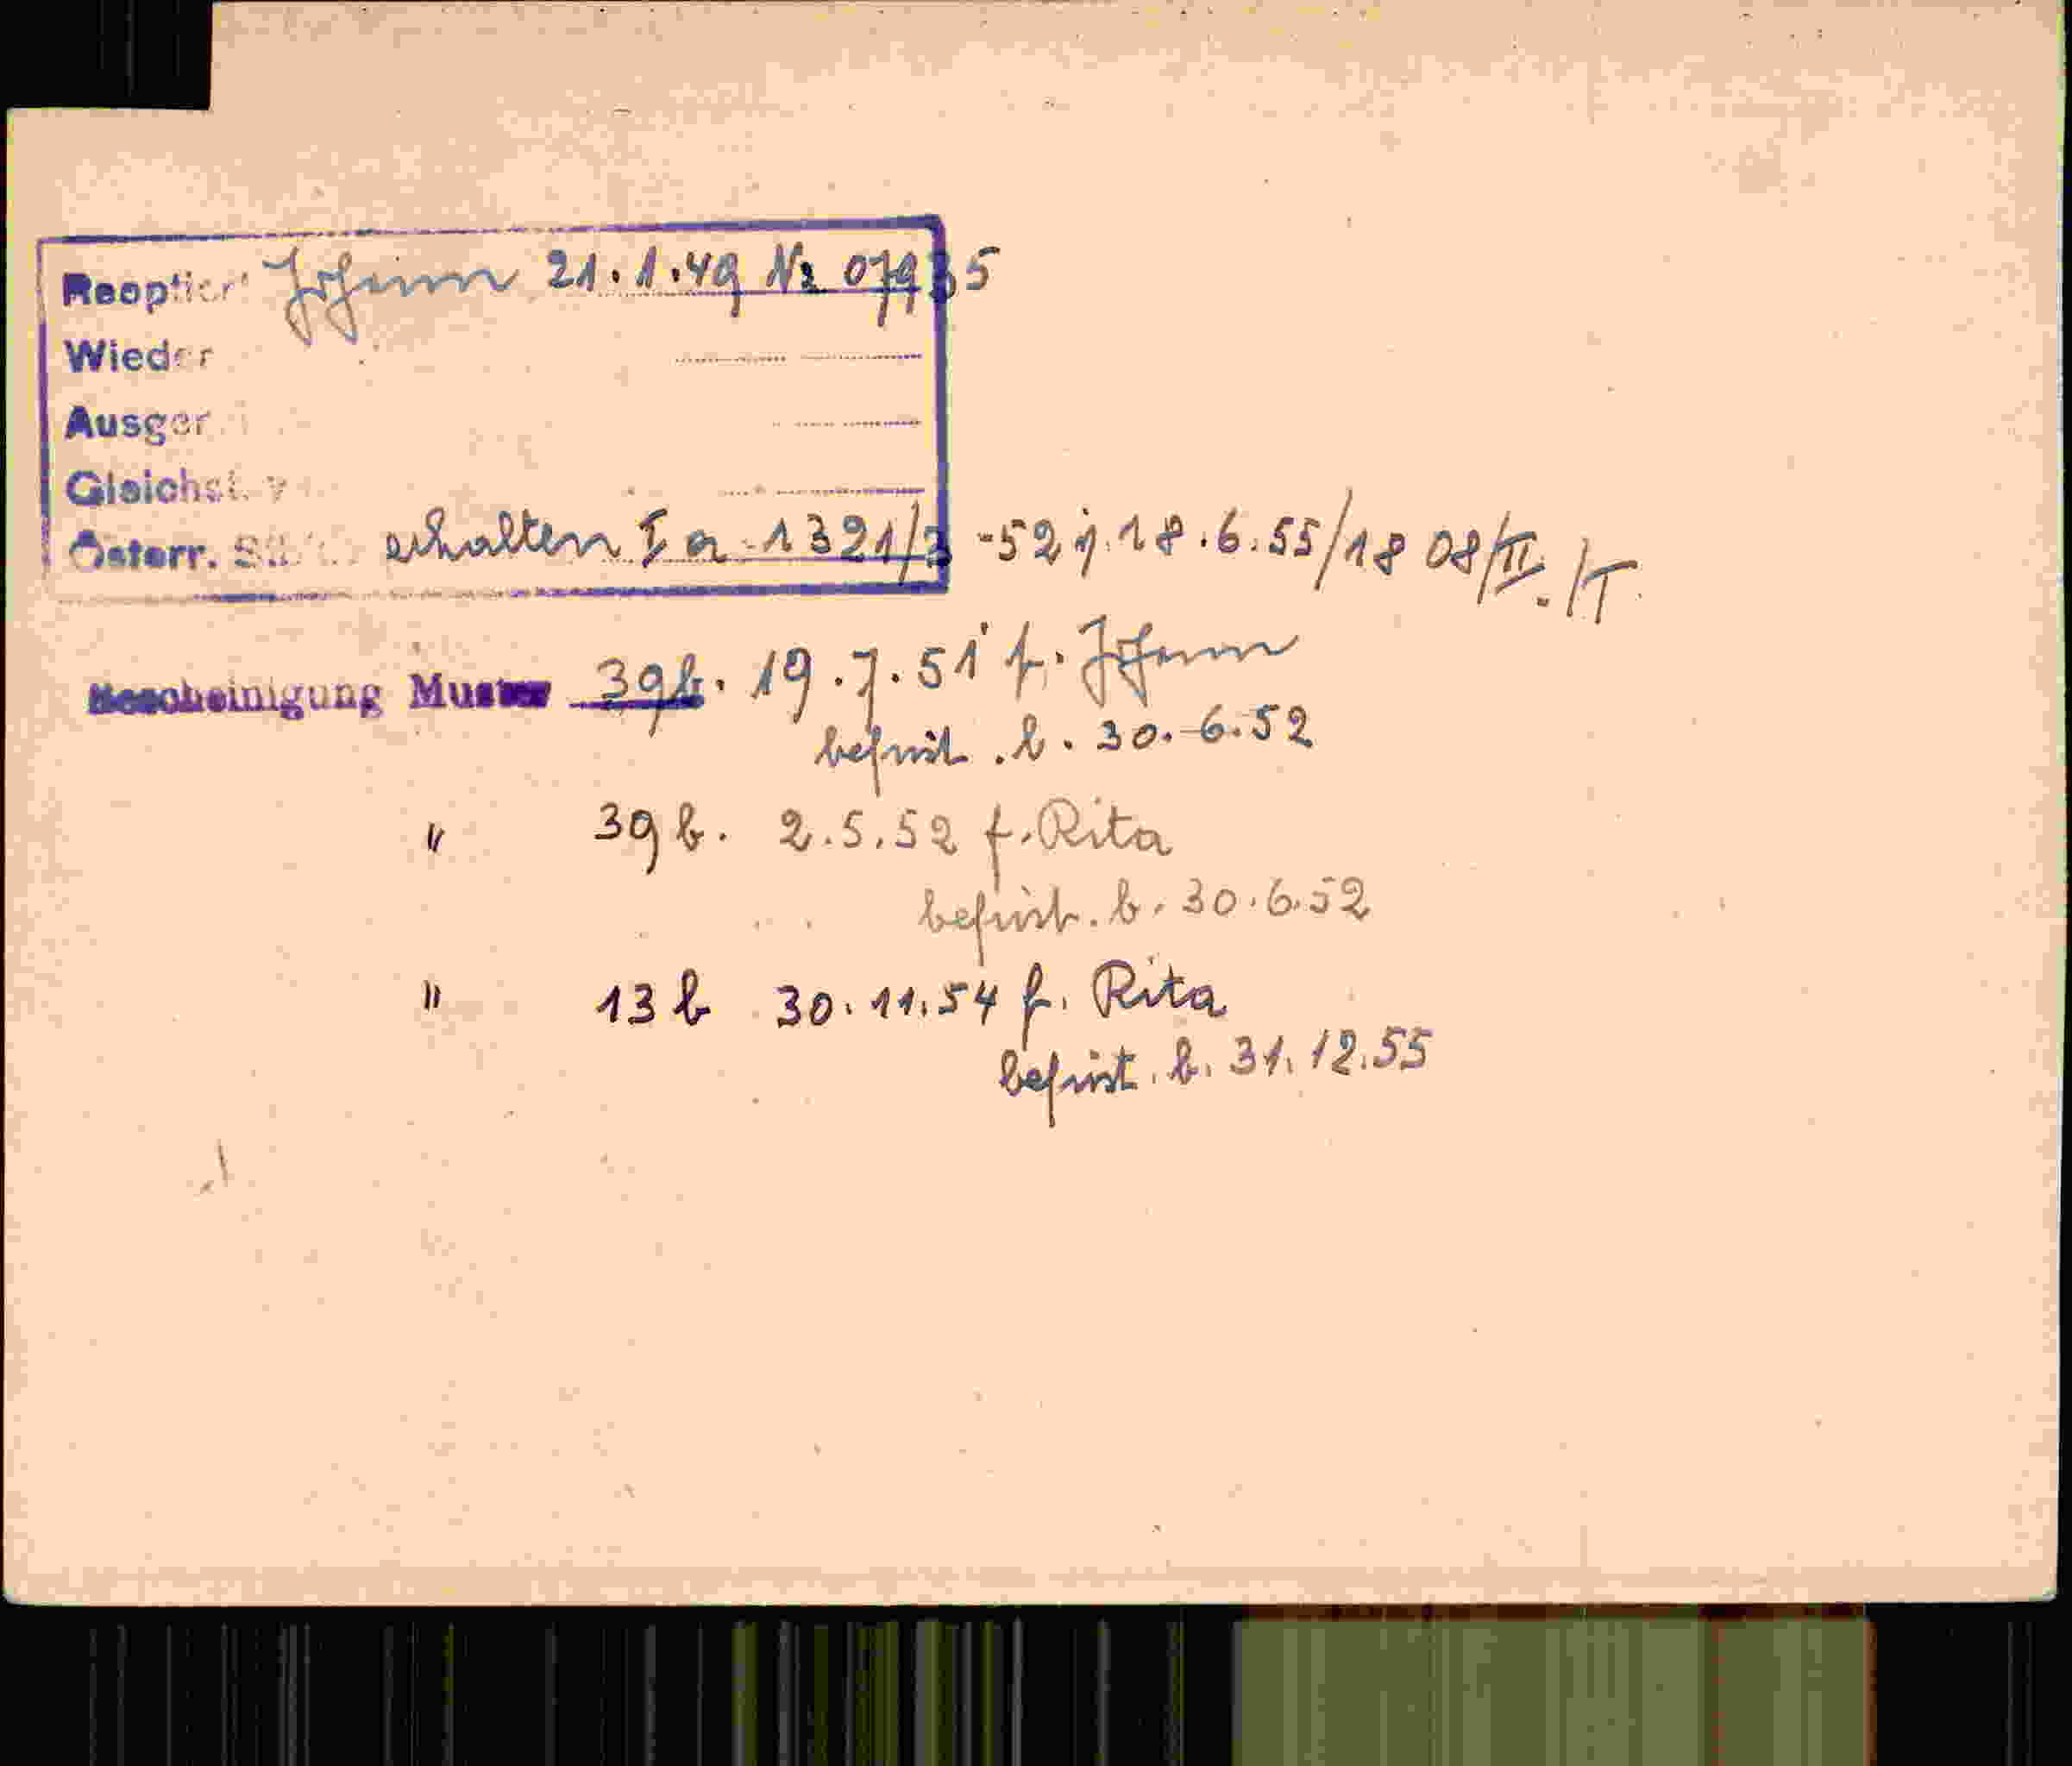 Reoptiert Johann 21.1.49 Nr 07935
Wieder
Ausger
Gleichst.
Österr. erhalten I a - 1321/3 -52 j. 18.6.55/18 08/II./T
Bescheinigung Muster 39b. 19.7.51 f. Johann
befrist. b. 30.6.52
" 39 b. 2.5.52 f. Rita
befrist. b. 30.6.52
" 13 b 30.11.54 f. Rita
befrist. b. 31.12.55